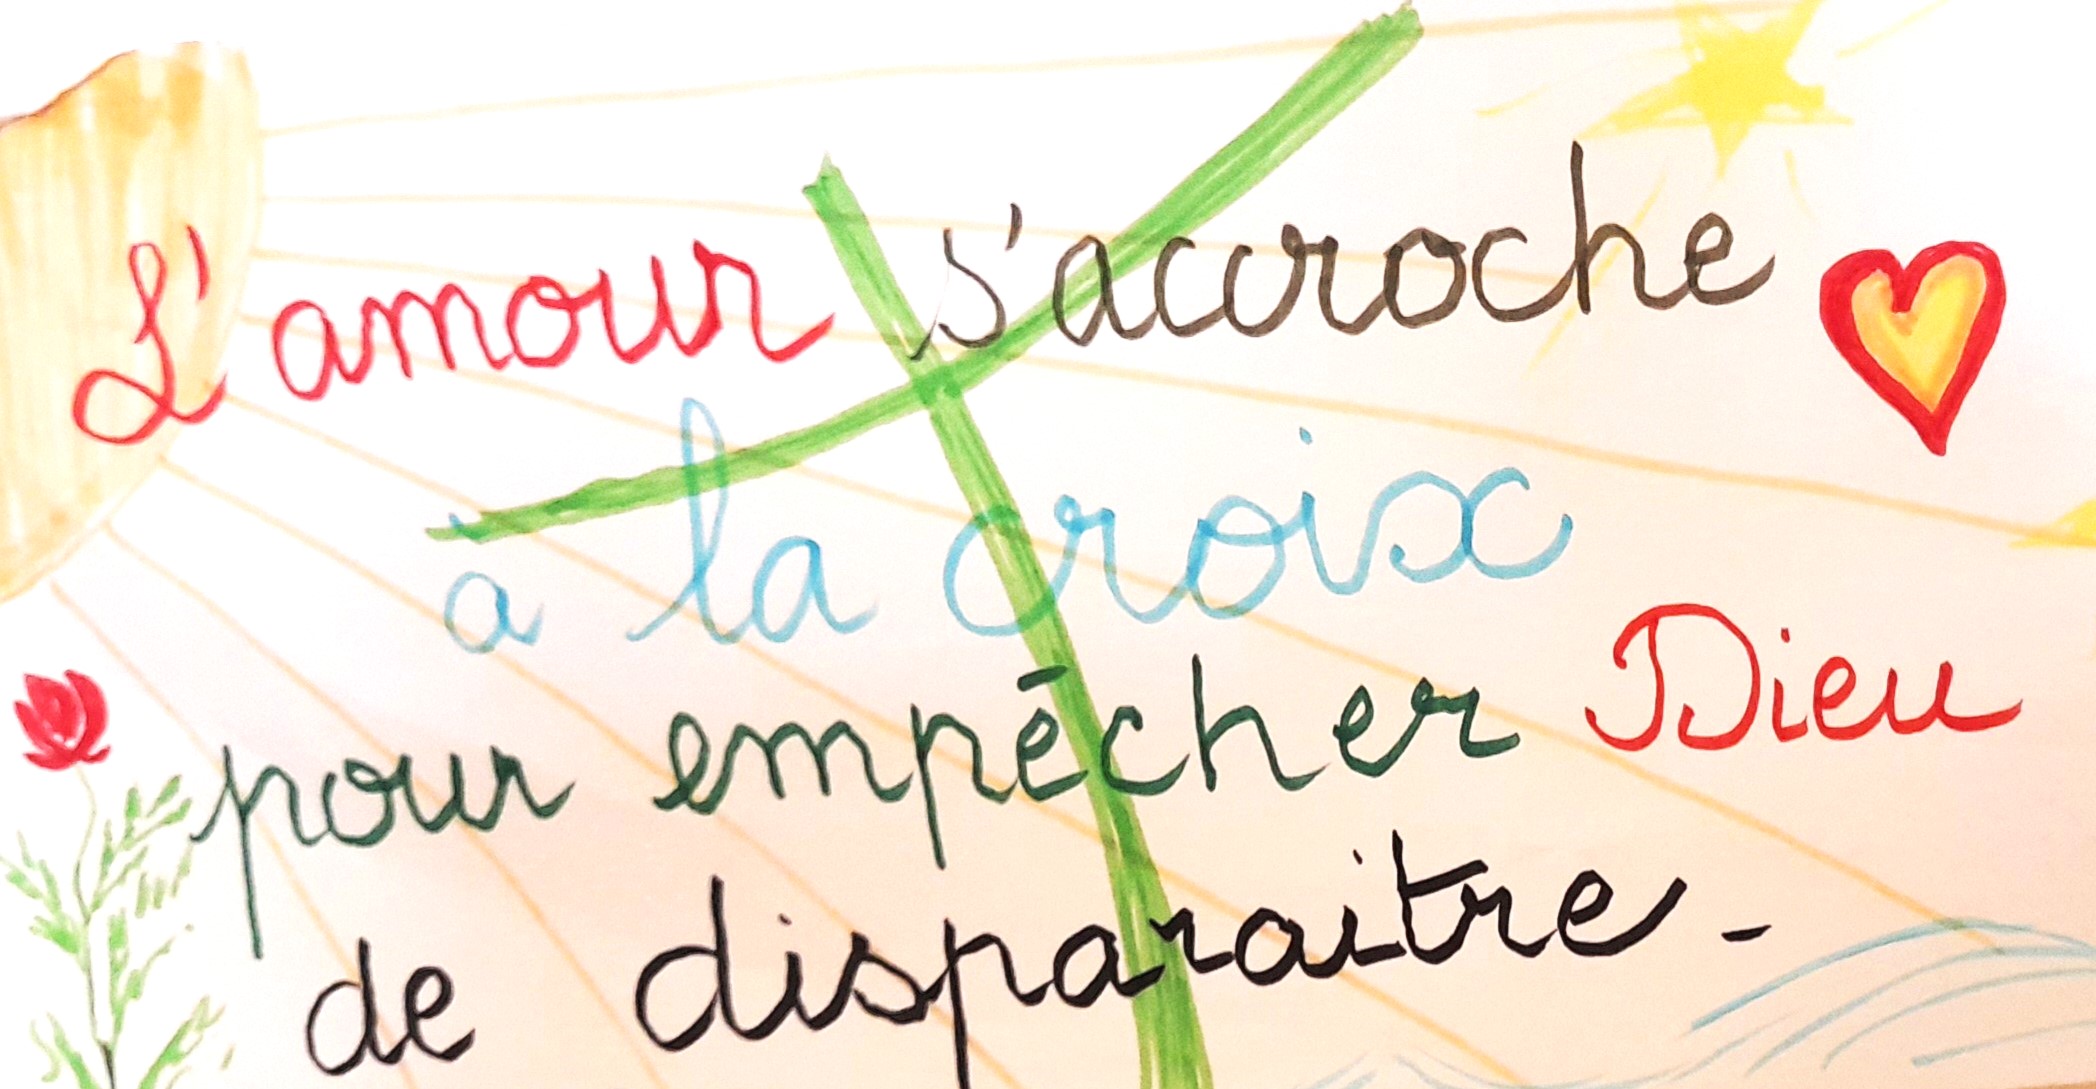 L'amour s'accroche
à la croix
pour empêcher Dieu
de disparaitre.